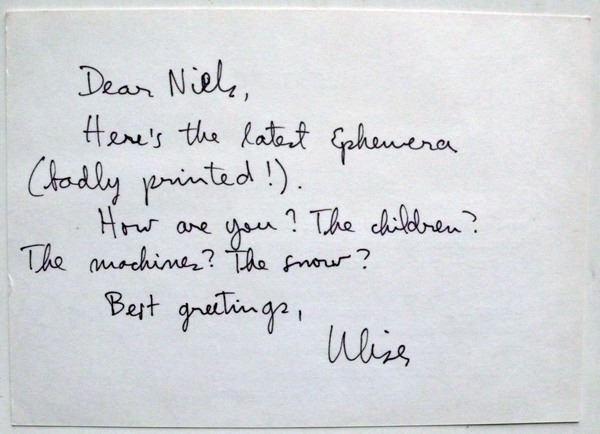 Dear Niels,
Here's the latest Ephemera
(badly printed!).
How are you? The children?
The machines? The snow?
Best greetings,
Ulises